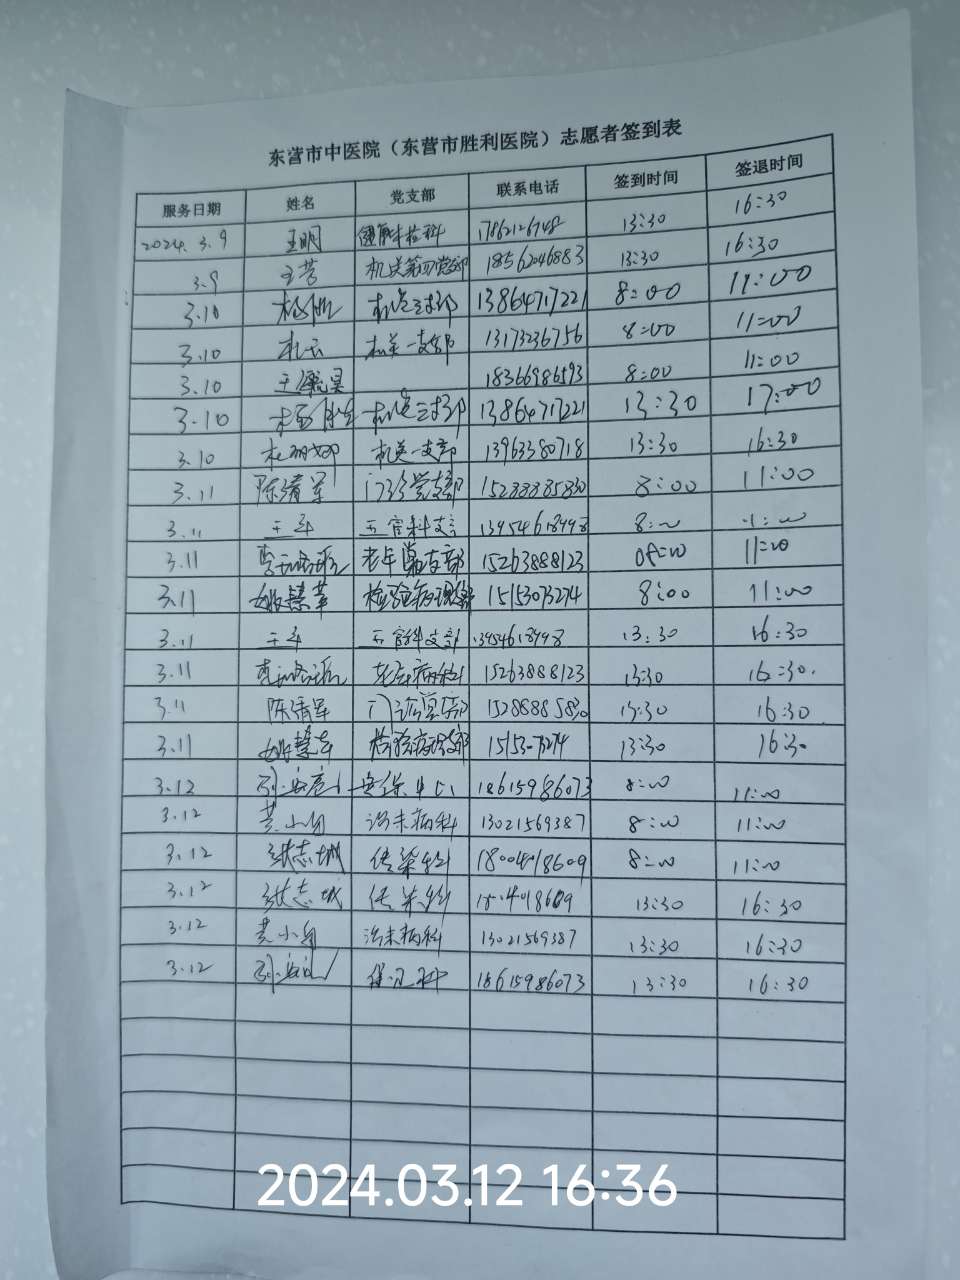 东营市中医院（东营市胜利医院）志愿者签到表
服务日期 姓名 党支部 联系电话 签到时间 签退时间
2024.3.9 王明 科 17862126748 13:30 16:30
3.9 王芳 机关第四党支部 18562046883 13:30 16:30
3.10 机关三支部 13864717221 8:00 11:00
3.10 杜云 机关一支部 13173236756 8:00 11:00
3.10 王 昊 18366986593 8:00 11:00
3.10 机关三支部 13864717221 13:30 17:00
3.10 杜丽娜 机关一支部 13963380718 13:30 16:30
3.11 陈清军 门诊党支部 15288885830 8:00 11:00
3.11 王军 五官科支 13954618998 8:00 11:00
3.11 老年病支部 15263888123 08:00 11:00
3.11 姚慧苹 检验病理 15153073274 8:00 11:00
3.11 王军 五官科支 13954618998 13:30 16:30
3.11 老年病科 15263888123 13:30 16:30.
3.11 陈清军 门诊党 15288885830 13:30 16:30
3.11 姚慧苹 检验病理 13:30 16:30
3.12 安保中心 18615986073 8:00 11:00
3.12 黄小甸 治未病科 13021569387 8:00 11:00
3.12 张志城 传染科 18004018609 8:00 11:00
3.12 张志城 传染科 13:30 16:30
3.12 黄小甸 治未病科 13021569387 13:30 16:30
3.12 科 18615986073 13:30 16:30
2024.03.12 16:36